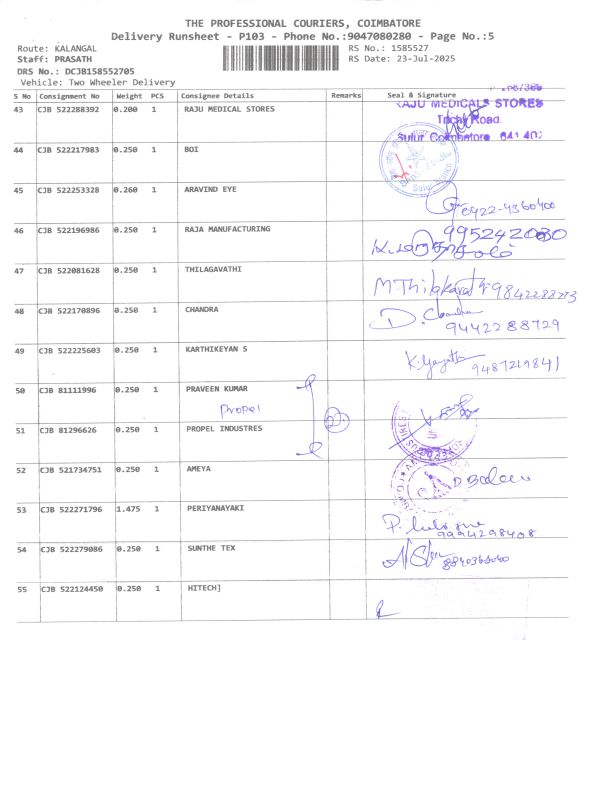 THE PROFESSIONAL COURIERS, COIMBATORE
Delivery Runsheet - P103 - Phone No.:9047080280 - Page No.:5
Route: KALANGAL RS No.: 1585527
Staff: PRASATH RS Date: 23-Jul-2025
DRS No.: DCJB158552705
Vehicle: Two Wheeler Delivery
S No Consignment No Weight PCS Consignee Details Remarks Seal & Signature
43 CJB 522288392 0.200 1 RAJU MEDICAL STORES
RAJU MEDICALS STORES
Trichy Road
Sulur Coimbatore 641 402
44 CJB 522217983 0.250 1 BOI
45 CJB 522253328 0.260 1 ARAVIND EYE
0422-4360400
46 CJB 522196986 0.250 1 RAJA MANUFACTURING
47 CJB 522081628 0.250 1 THILAGAVATHI
M Thilakavathi
48 CJB 522170896 0.250 1 CHANDRA
D. Chandra
9442288729
49 CJB 522225603 0.250 1 KARTHIKEYAN S
9487219841
50 CJB 81111996 0.250 1 PRAVEEN KUMAR
Propel
51 CJB 81296626 0.250 1 PROPEL INDUSTRES
52 CJB 521734751 0.250 1 AMEYA
53 CJB 522271796 1.475 1 PERIYANAYAKI
9994298408
54 CJB 522279086 0.250 1 SUNTHE TEX
55 CJB 522124450 0.250 1 HITECH]